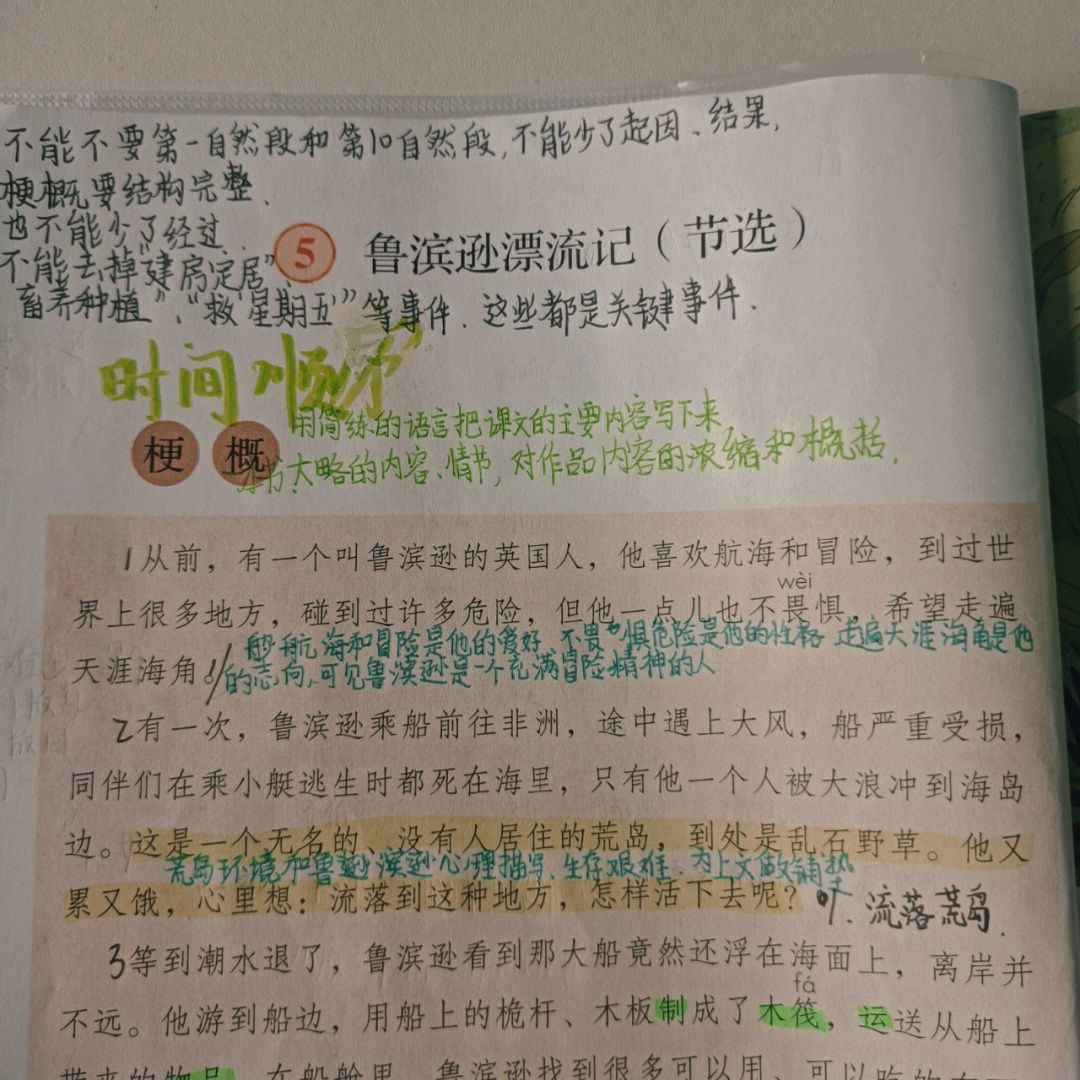 不能不要第一自然段和第10自然段,不能少了起因、结果,
梗概要结构完整、
也不能少了经过.
5 鲁滨逊漂流记（节选）
不能去掉“建房定居”、
畜养种植”、“救‘星期五’”等事件.这些都是关键事件.
时间顺序
用简练的语言把课文的主要内容写下来
梗 概
书大略的内容、情节,对作品内容的浓缩和概括.
1从前，有一个叫鲁滨逊的英国人，他喜欢航海和冒险，到过世
wèi
界上很多地方，碰到过许多危险，但他一点儿也不畏惧，希望走遍
航海和冒险是他的爱好 不畏惧危险是他的性格 走遍天涯海角是他
天涯海角。
的志向,可见鲁滨逊是一个充满冒险精神的人
2有一次，鲁滨逊乘船前往非洲，途中遇上大风，船严重受损，
同伴们在乘小艇逃生时都死在海里，只有他一个人被大浪冲到海岛
边。这是一个无名的、没有人居住的荒岛，到处是乱石野草。他又
荒岛环境和鲁滨逊心理描写.生存艰难.为上文做铺垫
累又饿，心里想：流落到这种地方，怎样活下去呢？ 流落荒岛.
3等到潮水退了，鲁滨逊看到那大船竟然还浮在海面上，离岸并
fá
不远。他游到船边，用船上的桅杆、木板制成了木筏，运送从船上
带来的物品。在船舱里，鲁滨逊找到很多可以用、可以吃的东